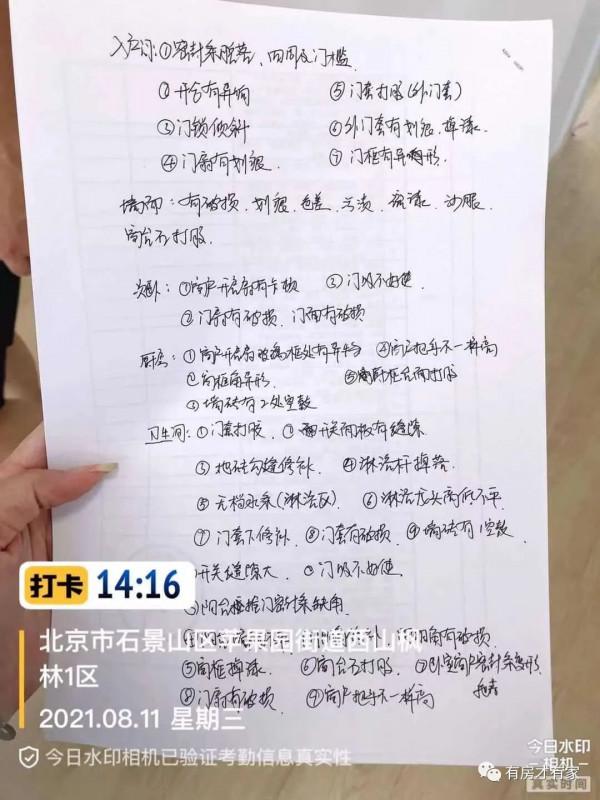 入户门:①密封条脱落、四周及门槛
②开合有异响 ⑤门套打胶(外门套)
③门锁倾斜 ⑥外门套有划痕、掉漆.
④门扇有划痕 ⑦门框有异响形.
墙面:有破损、划痕、色差、污渍、流漆、
窗台石打胶.
次卧:①窗户开启有卡顿 ③门吸不好使
②门扇有破损、门面有破损
厨房:①窗户开启 玻璃框处有异物 ④窗户把手不一样高
②窗框角异形 ⑤ 打胶
③墙砖有2处空鼓
卫生间:①门套打胶 ②开关面板有缝隙
③地砖勾缝修补、④淋浴杆掉落.
⑤无档水条(淋浴区) ⑥淋浴龙头高低不平
⑦门套下修补、⑧门套有破损、⑨墙砖有1空鼓
开关缝隙大、②门吸不好使
③阳台 门密封条缺角
角有破损
⑤窗框掉漆. ⑥窗台石打胶、⑦卧室窗户密封条变形
⑧门扇有破损 ⑨窗户把手不一样高
打卡 14:16
北京市石景山区苹果园街道西山枫
林1区
2021.08.11 星期三
今日水印相机已验证考勤信息真实性
今日水印
相机
真实时间
有房才有家